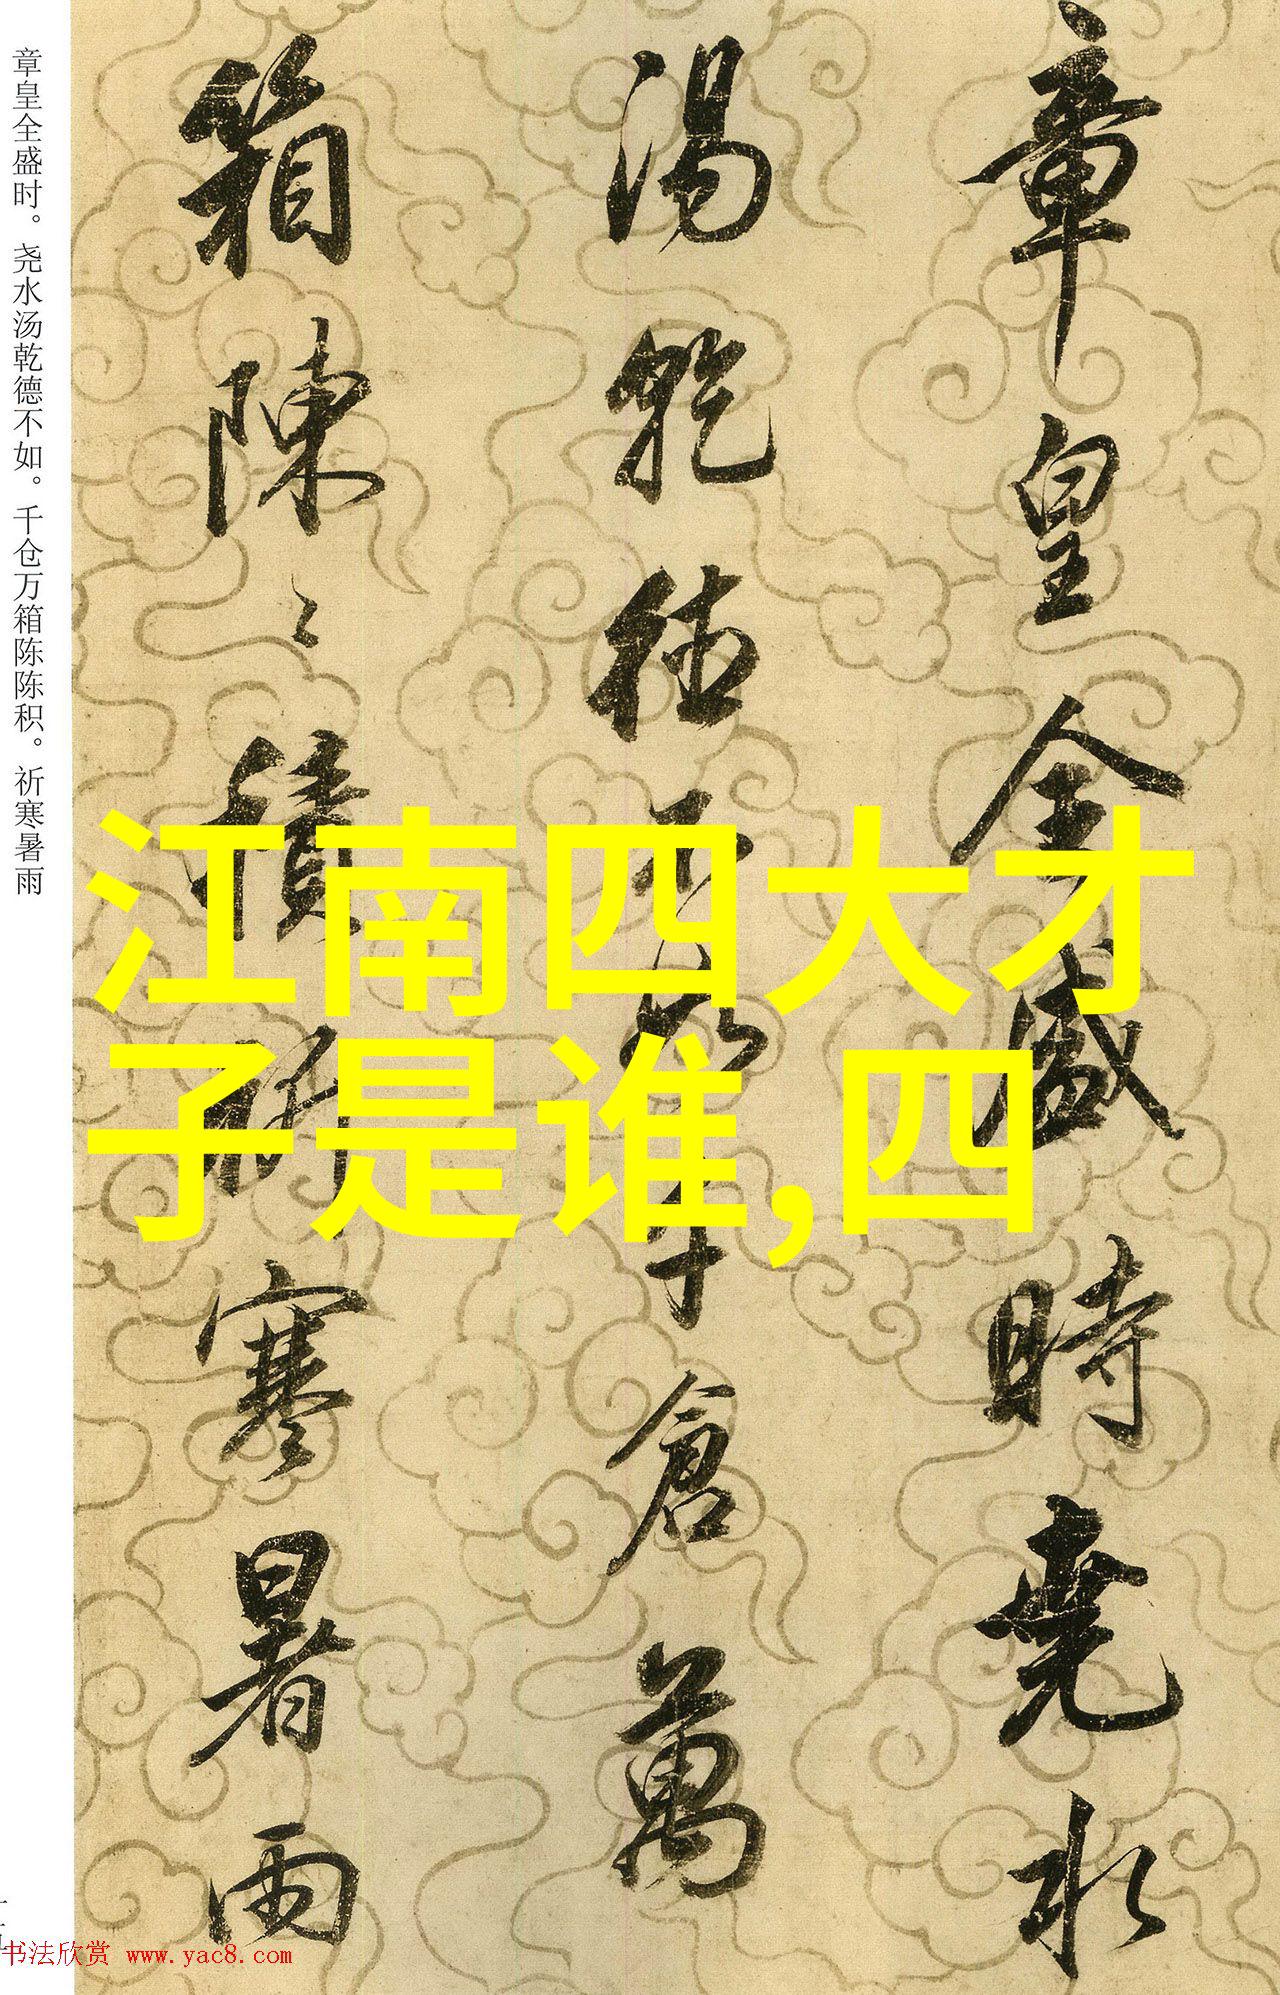 章皇全盛時堯水
湯乾德不如千倉萬
箱陳陳積祈寒暑雨
章皇全盛时。尧水汤乾德不如。千仓万箱陈陈积。祈寒暑雨
江南四大才
子是谁,四
书法欣赏 www.yac8.com